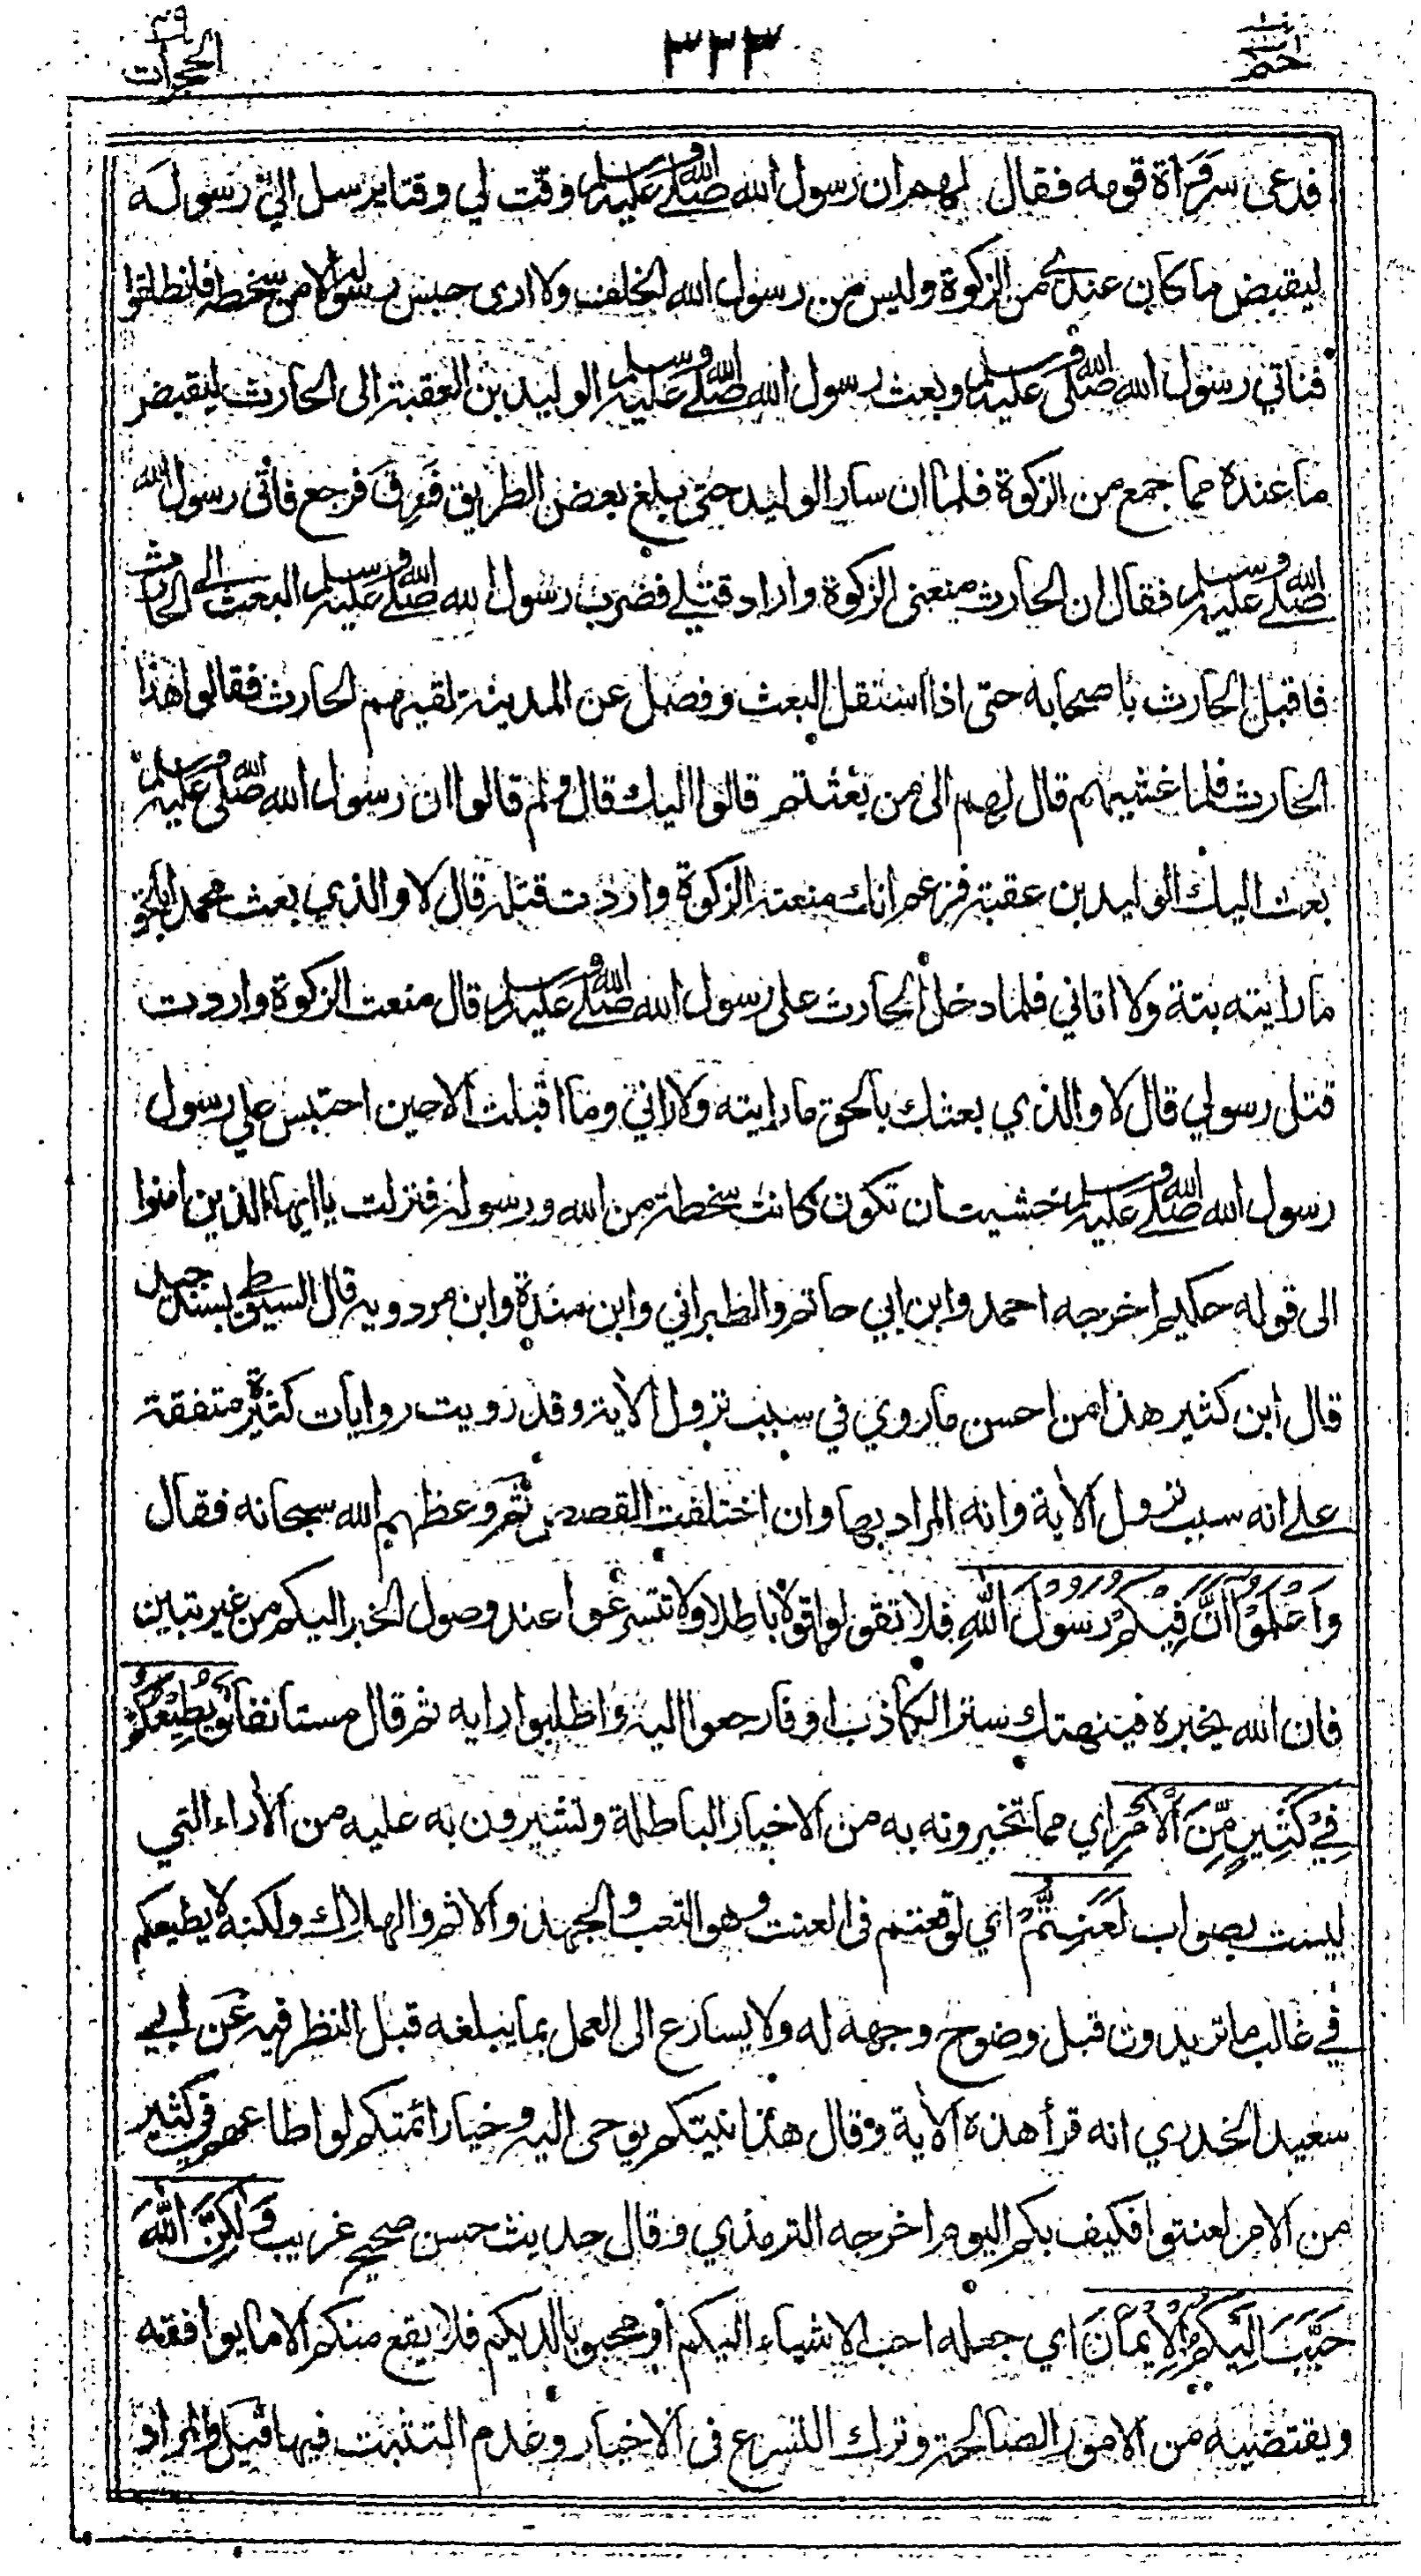 الحجرات ٤٩
٣٣٣
حم
فدعى سرواة قومه فقال لهم ان رسول الله صلى الله عليه وسلم وقت لي وقتا يرسل الي رسوله
ليقبض ما كان عندي من الزكوة وليس من رسول الله الخلف ولا ارى حبس رسوله الا من سخطه فانطلقوا
فناتي رسول الله صلى الله عليه وسلم وبعث رسول الله صلى الله عليه وسلم الوليد بن العقبة الى الحارث ليقبض
ما عنده مما جمع من الزكوة فلما ان سار الوليد حتى بلغ بعض الطريق فَرِقَ فرجع فاتى رسول الله
صلى الله عليه وسلم فقال ان الحارث منعني الزكوة واراد قتلي فضرب رسول الله صلى الله عليه وسلم البعث الى الحارث
فاقبل الحارث باصحابه حتى اذا استقل البعث وفصل عن المدينة لقيهم الحارث فقالوا هذا
الحارث فلما غشيهم قال لهم الى من بعثتم قالوا اليك قال ولم قالوا ان رسول الله صلى الله عليه وسلم
بعث اليك الوليد بن عقبة فزعم انك منعته الزكوة واردت قتله قال لا والذي بعث محمدا بالحق
ما رايته بتة ولا اتاني فلما دخل الحارث على رسول الله صلى الله عليه وسلم قال منعت الزكوة واردت
قتل رسولي قال لا والذي بعثك بالحق ما رايته ولا راني وما اقبلت الا حين احتبس علي رسول
رسول الله صلى الله عليه وسلم خشيت ان تكون كانت سخطة من الله ورسوله فنزلت يا ايها الذين امنوا
الى قوله حكيم اخرجه احمد وابن ابي حاتم والطبراني وابن مندة وابن مردويه قال السيوطي بسند جيد
قال ابن كثير هذا من احسن ما روي في سبب نزول الأية وقد رويت روايات كثيرة متفقة
على انه سبب نزول الأية وانه المراد بها وان اختلفت القصص ثم وعظهم الله سبحانه فقال
وَاعْلَمُوْا اَنَّ فِيْكُمْ رَسُوْلَ اللّٰهِ فلا تقولوا قولا باطلا ولا تتسرعوا عند وصول الخبر اليكم من غير تبين
فان الله يخبره فينهتك ستر الكاذب او فارجعوا اليه واطلبوا رايه ثم قال مستانفا لَوْ يُطِيْعُكُمْ
فِيْ كَثِيْرٍ مِّنَ الْاَمْرِ اي مما تخبرونه به من الاخبار الباطلة وتشيرون به عليه من الأراء التي
ليست بصواب لَعَنِتُّمْ اي لوقعتم في العنت وهو التعب والجهد والاثم والهلاك ولكنه لا يطيعكم
في غالب ما تريدون قبل وضوح وجهه له ولا يسارع الى العمل بما يبلغه قبل النظر فيه عن ابي
سعيد الخدري انه قرأ هذه الأية وقال هذا نبيكم يوحى اليه وخيار ائمتكم لو اطاعهم في كثير
من الامر لعنتوا فكيف بكم اليوم اخرجه الترمذي وقال حديث حسن صحيح غريب وَلٰكِنَّ اللّٰهَ
حَبَّبَ اِلَيْكُمُ الْاِيْمَانَ اي جعله احب الاشياء اليكم او محبوبا لديكم فلا يقع منكم الا ما يوافقه
ويقتضيه من الامور الصالحة وترك التسرع في الاخبار وعدم التثبت فيها قيل والمراد